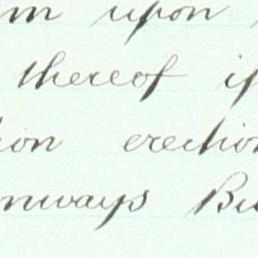 um upon
thereof if
ion erection
nways Bu